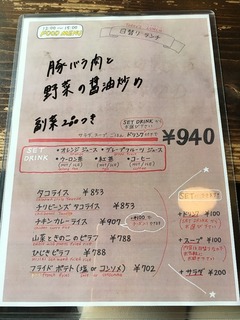 12:00〜15:00
FOOD MENU
日替り ランチ
豚バラ肉と
野菜の醤油炒め
副菜2品つき
サラダ、スープ、ごはん
ドリンク付き
¥940
SET DRINK
・オレンジジュース ・グレープフルーツジュース
・ウーロン茶 ・紅茶 ・コーヒー
タコライス ¥853
チリビーンズタコライス ¥853
チキンカレーライス ¥907
山菜ときのこのピラフ ¥788
ひじきピラフ ¥788
フライドポテト (塩 or コンソメ) ¥702
+¥100
+ドリンク ¥100
+スープ ¥100
+サラダ ¥200